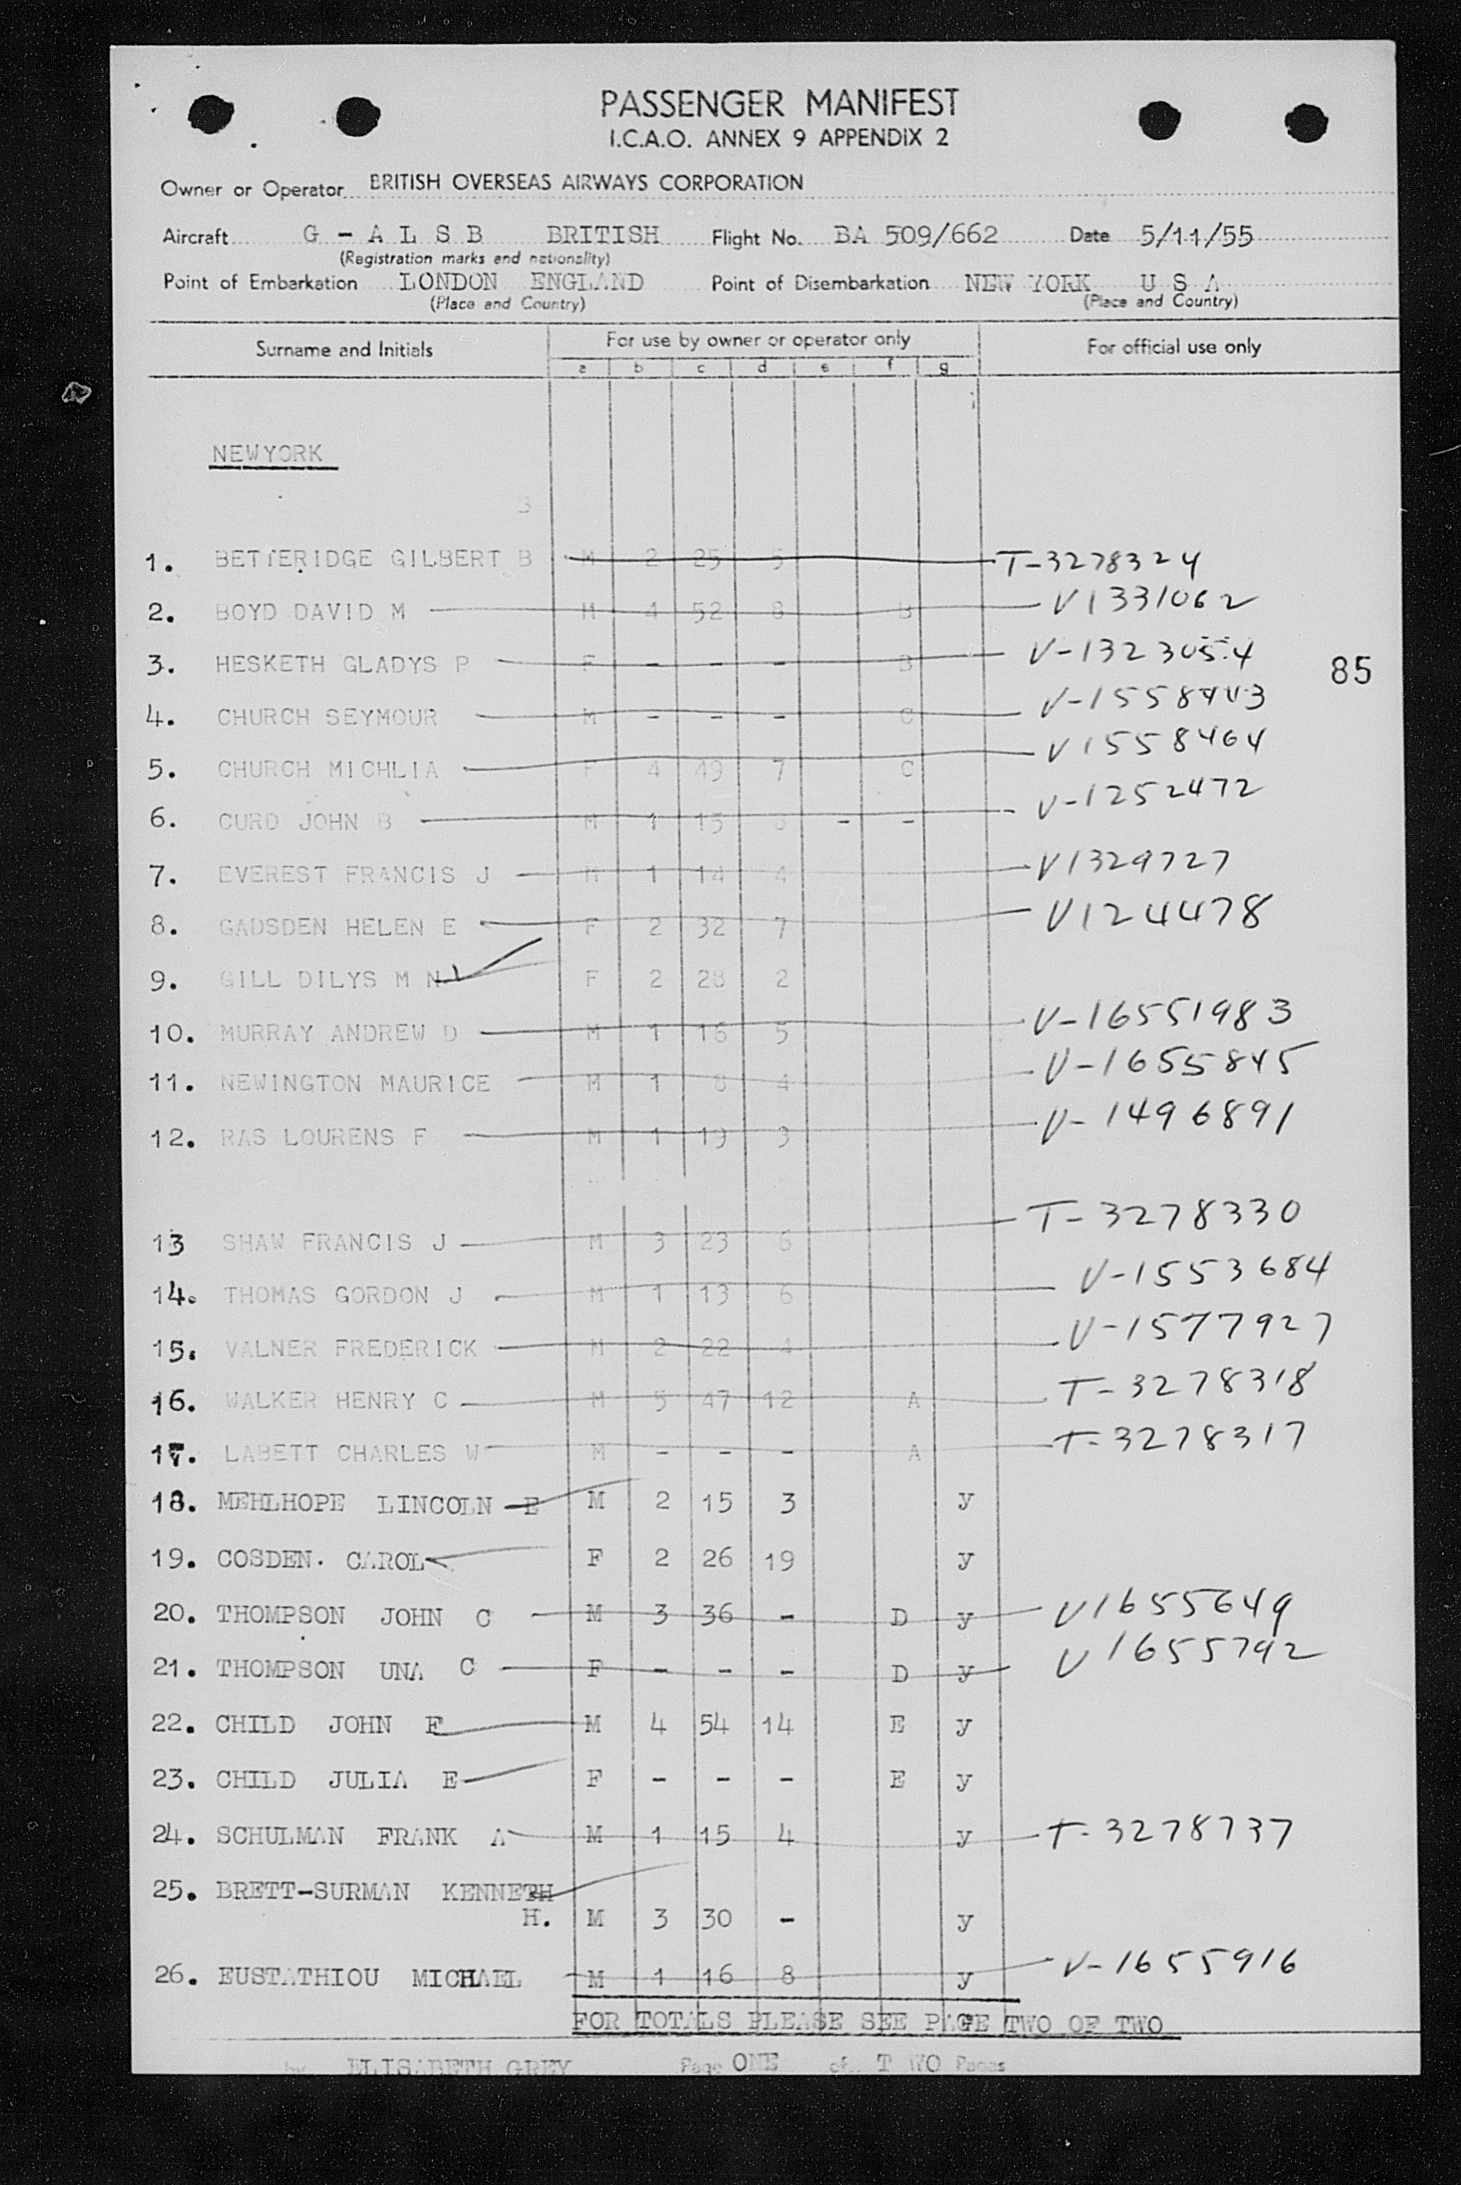 PASSENGER MANIFEST
I.C.A.O. ANNEX 9 APPENDIX 2
Owner or Operator BRITISH OVERSEAS AIRWAYS CORPORATION
Aircraft G - A L S B BRITISH Flight No. BA 509/662 Date 5/11/55
(Registration marks and nationality)
Point of Embarkation LONDON ENGLAND Point of Disembarkation NEW YORK U S A
(Place and Country) (Place and Country)
Surname and Initials For use by owner or operator only For official use only
a b c d e f g
NEWYORK
B
1. BETTERIDGE GILBERT B M 2 25 5 T-3278324
2. BOYD DAVID M M 4 52 8 B V1331062
3. HESKETH GLADYS P F - - - B V-1323054
85
4. CHURCH SEYMOUR M - - - C
5. CHURCH MICHLIA F 4 49 7 C V1558464
6. CURD JOHN B M 1 15 - - V-1252472
7. EVEREST FRANCIS J M 1 14 4 V1329727
8. GADSDEN HELEN E F 2 32 7 V124478
9. GILL DILYS M N F 2 28 2
10. MURRAY ANDREW D M 1 16 5 V-16551983
11. NEWINGTON MAURICE M 1 8 4 V-1655845
12. RAS LOURENS F M 1 19 3 V-1496891
13 SHAW FRANCIS J M 3 23 6 T-3278330
14. THOMAS GORDON J M 1 13 6 V-1553684
15. VALNER FREDERICK M 2 22 4 V-1577927
16. WALKER HENRY C M 5 47 12 A T-3278318
17. LABETT CHARLES W M - - - A T-3278317
18. MEHLHOPE LINCOLN E M 2 15 3 y
19. COSDEN. CAROL F 2 26 19 y
20. THOMPSON JOHN C M 3 36 - D y V1655649
21. THOMPSON UNA C F - - - D y V1655792
22. CHILD JOHN F M 4 54 14 E y
23. CHILD JULIA E F - - - E y
24. SCHULMAN FRANK A M 1 15 4 y T-3278737
25. BRETT-SURMAN KENNETH
H. M 3 30 - y
26. EUSTATHIOU MICHAEL M 1 16 8 y V-1655916
FOR TOTALS PLEASE SEE PAGE TWO OF TWO
by ELISABETH GREY Page ONE of T WO Pages